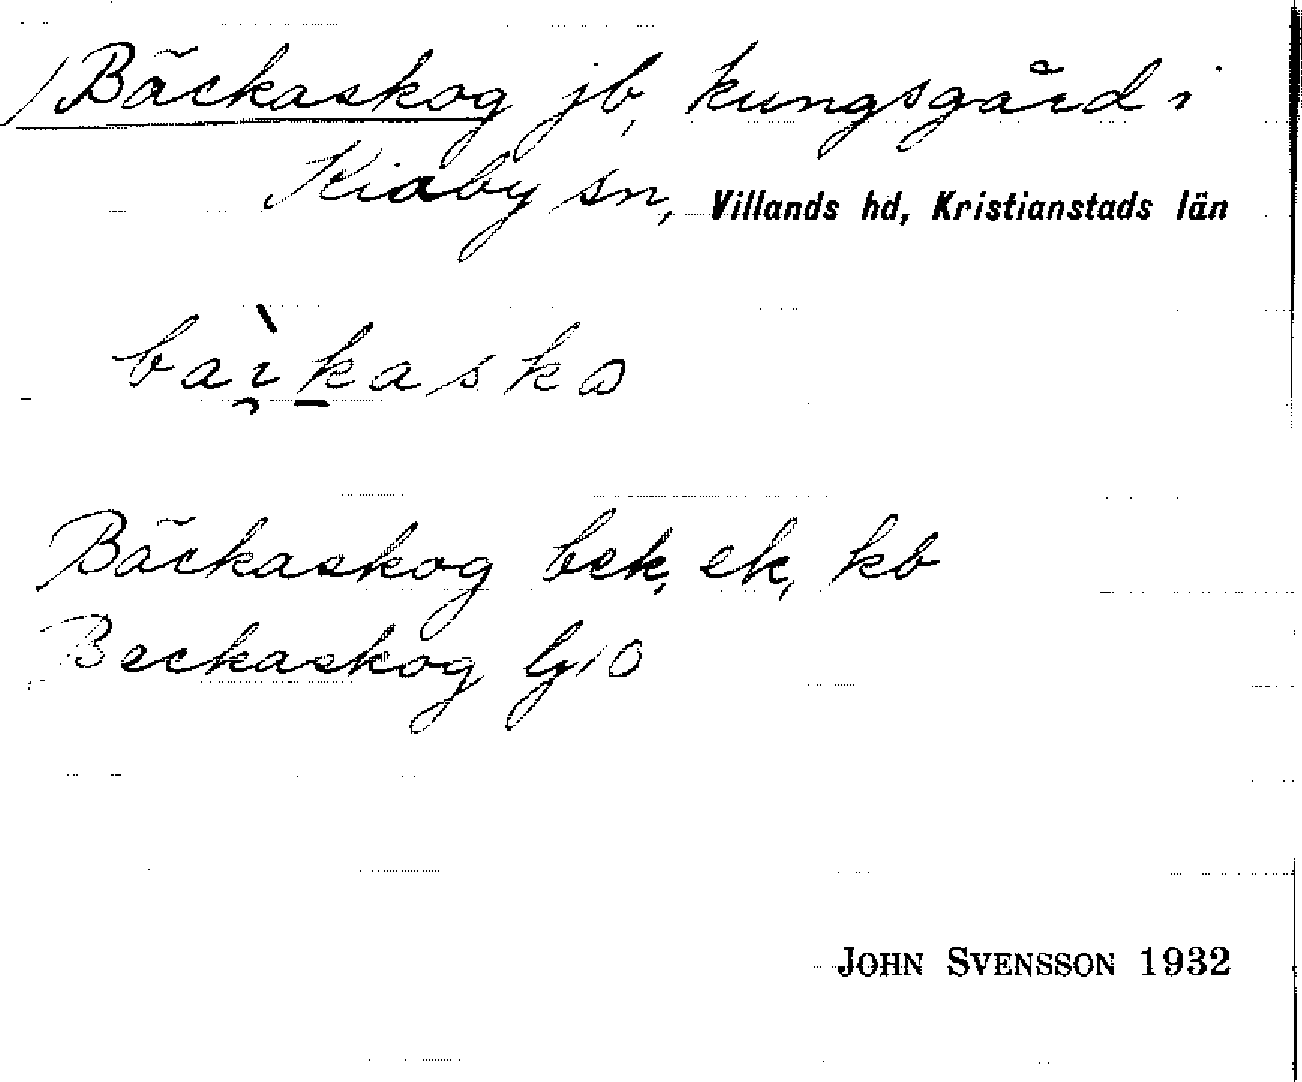 Bäckaskog jb, kungsgård i
Kiaby sn, Villands hd, Kristianstads län
baı̯̀k̠askɷ
Bäckaskog bek, ek, kb
Beckaskog GjO
JOHN SVENSSON 1932